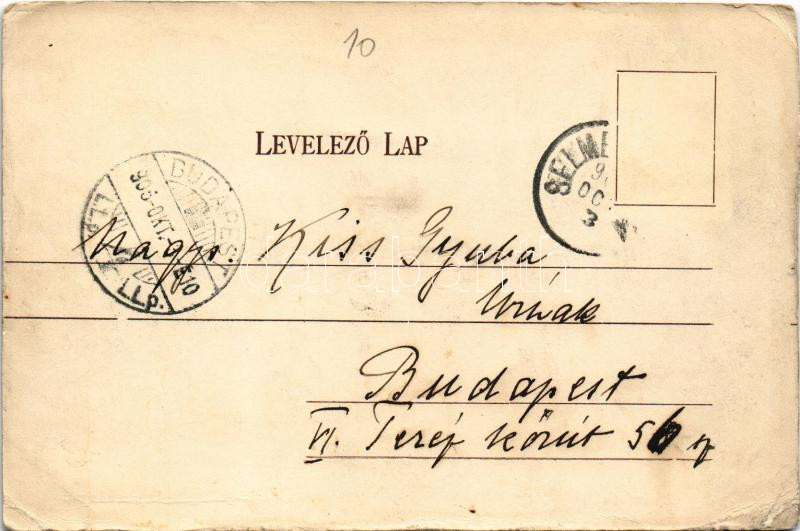 10
LEVELEZŐ LAP
BUDAPEST
905 OKT.
LLp.
SELME
OC
3
darabanth
Nagys. Kiss Gyula
Úrnak
Budapest
VI. Teréz körút 56